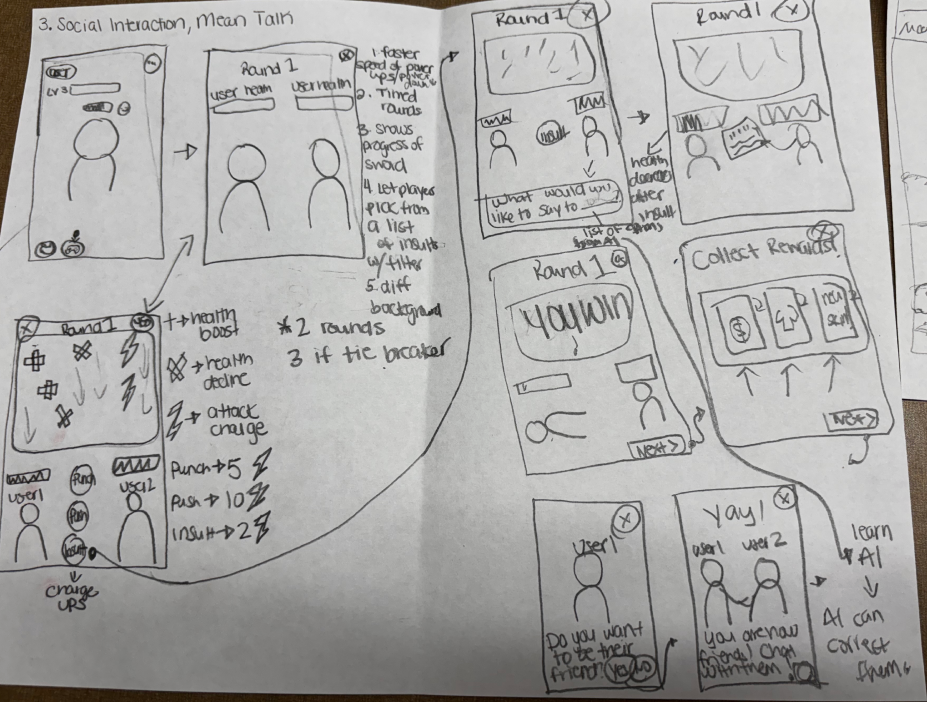 3. Social Interaction, Mean Talk
LV 3
Round 1
user health
user health
1. faster
speed of power
ups/power
downs
2. Timed
rounds
3. shows
progress of
3. Let player
pick from
a list
of insults
w/ filter
5. diff
background
Round 1
+ → health
boost
→ health
decline
→ attack
charge
* 2 rounds
3 if tie breaker
Punch → 5
Push → 10
Insult → 2
Punch
Push
Insult
User 1
User 2
charge
ups
Round 1
X
insult
What would you
like to say to
list of options
from AI
Round 1
X
health
decreases
after
insult
Round 1
You win
Next >
Collect Rewards!
X
$
new
skin
Next >
X
User 1
Do you want
to be their
friend?
Yes
No
X
Yay!
user 1 user 2
you are now
friends! Chat
with them!
learn
AI
AI can
collect
them